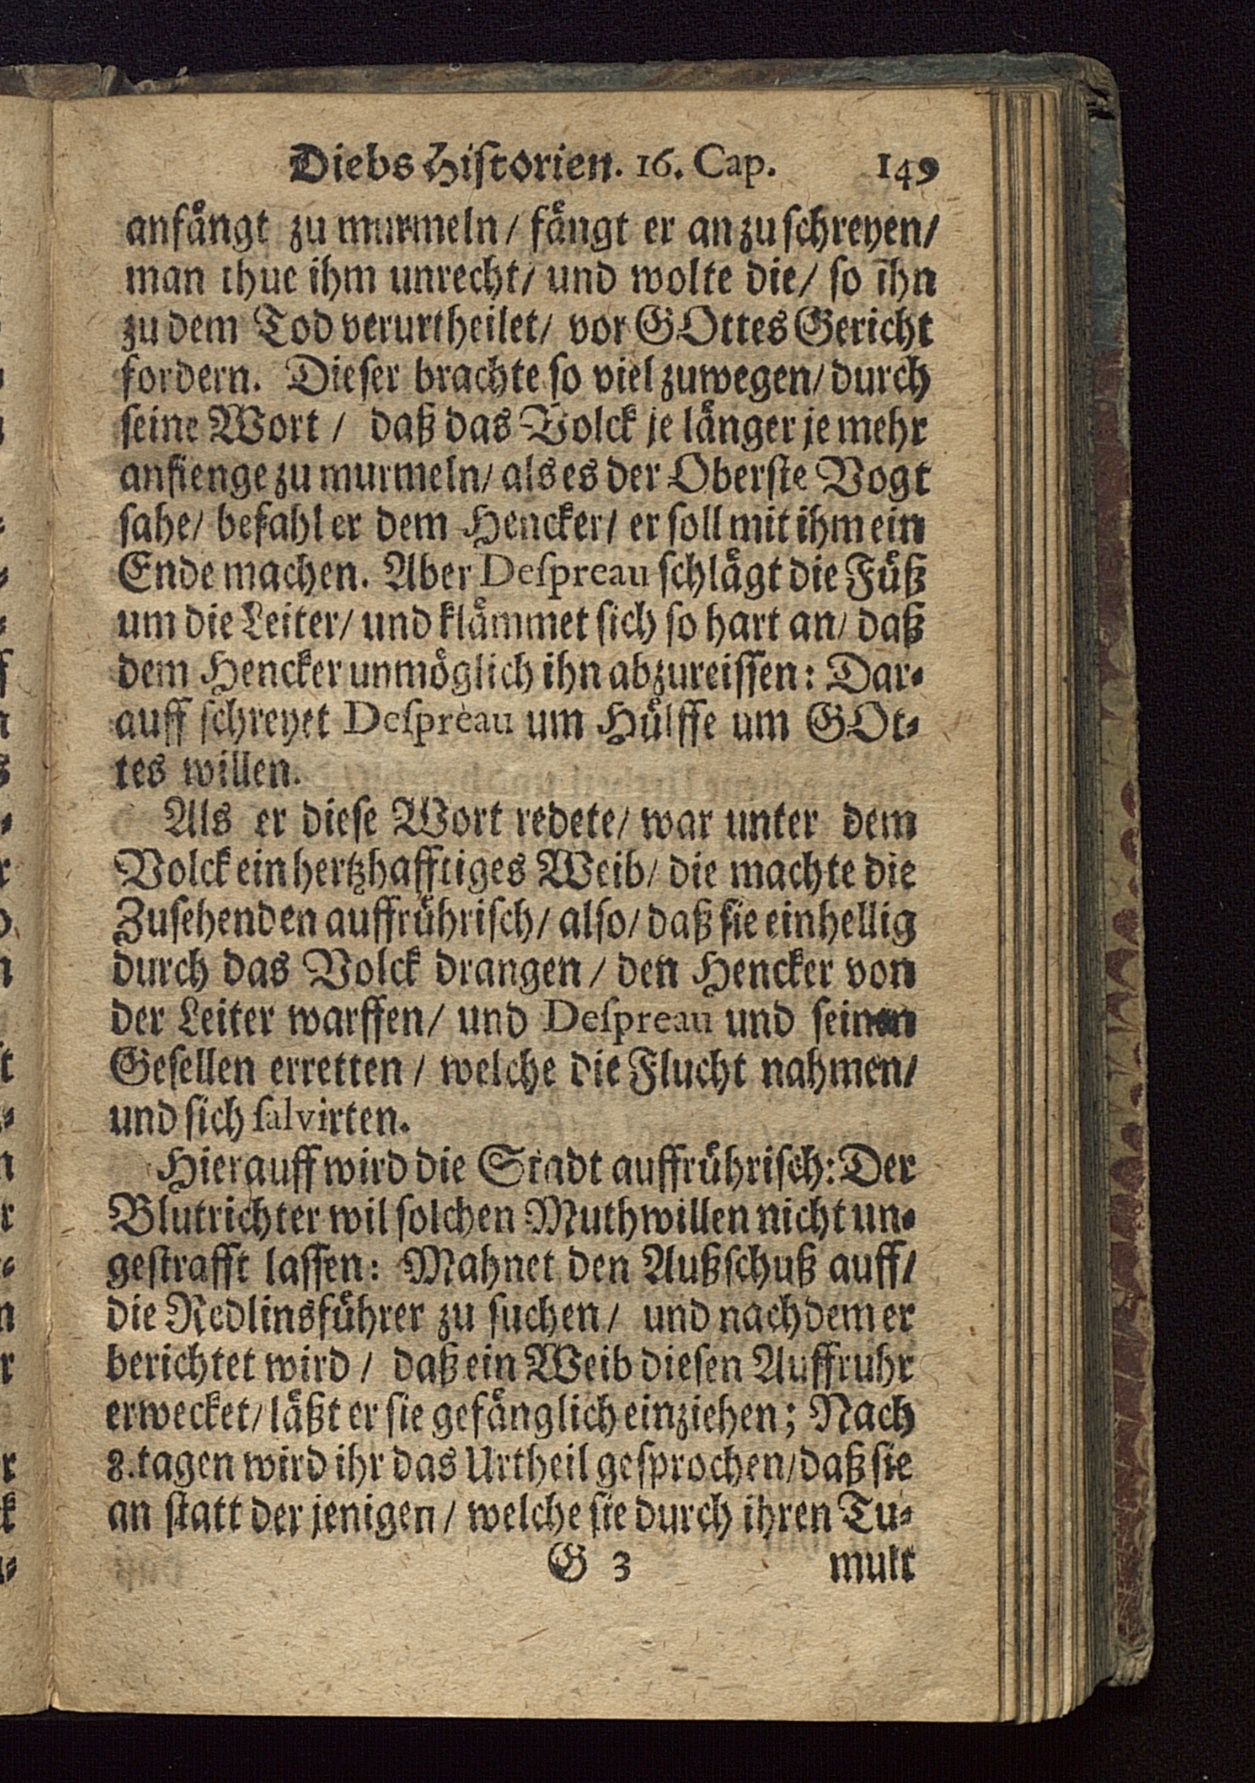 Diebs Historien. 16. Cap. 149
anfängt zu murmeln / fängt er an zu schreyen/
man thue ihm unrecht/ und wolte die/ so ihn
zu dem Tod verurtheilet/ vor GOttes Gericht
fordern. Dieser brachte so viel zuwegen/ durch
seine Wort / daß das Volck je länger je mehr
anfienge zu murmeln/ als es der Oberste Vogt
sahe/ befahl er dem Hencker/ er soll mit ihm ein
Ende machen. Aber Despreau schlägt die Füß
um die Leiter/ und klämmet sich so hart an/ daß
dem Hencker unmöglich ihn abzureissen: Dar-
auff schreyet Despreau um Hülffe um GOt-
tes willen.
Als er diese Wort redete/ war unter dem
Volck ein hertzhafftiges Weib/ die machte die
Zusehenden auffrührisch/ also/ daß sie einhellig
durch das Volck drangen / den Hencker von
der Leiter warffen/ und Despreau und seinen
Gesellen erretten / welche die Flucht nahmen/
und sich salvirten.
Hierauff wird die Stadt auffrührisch: Der
Blutrichter wil solchen Muthwillen nicht un-
gestrafft lassen: Mahnet den Außschuß auff/
die Redlinsführer zu suchen/ und nachdem er
berichtet wird / daß ein Weib diesen Auffruhr
erwecket/ läßt er sie gefänglich einziehen; Nach
8. tagen wird ihr das Urtheil gesprochen/ daß sie
an statt der jenigen / welche sie durch ihren Tu-
G 3 mult